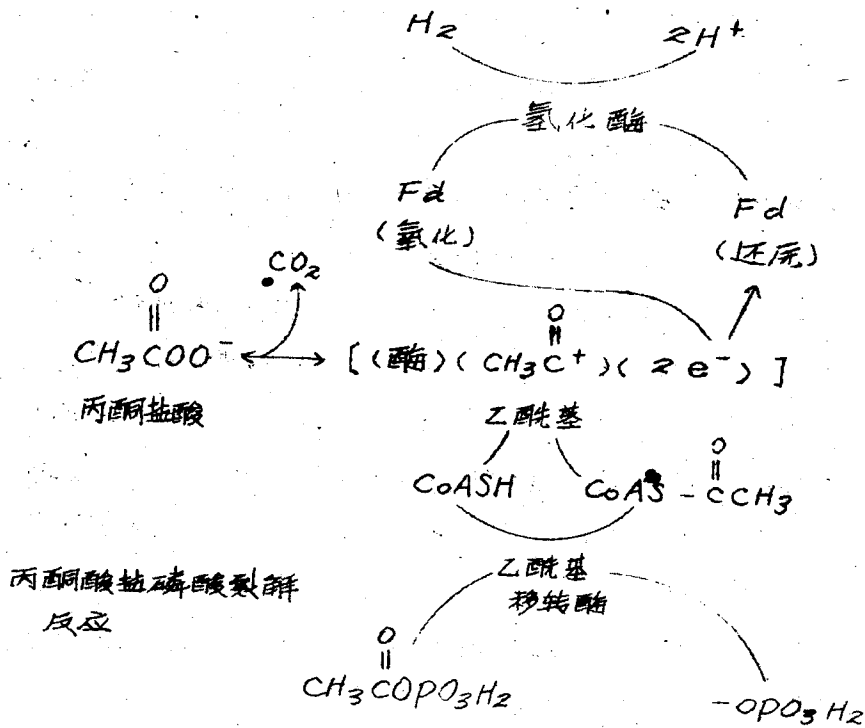 H2 2H+
氢化酶
Fd Fd
(氧化) (还原)
CO2
O
CH3CCOO- [(酶)(CH3C+)(2e-)]
O
丙酮盐酸 乙酰基
CoASH CoAS-CCH3
O
丙酮酸盐磷酸裂解
反应
乙酰基
移转酶
O
CH3COPO3H2 -OPO3H2